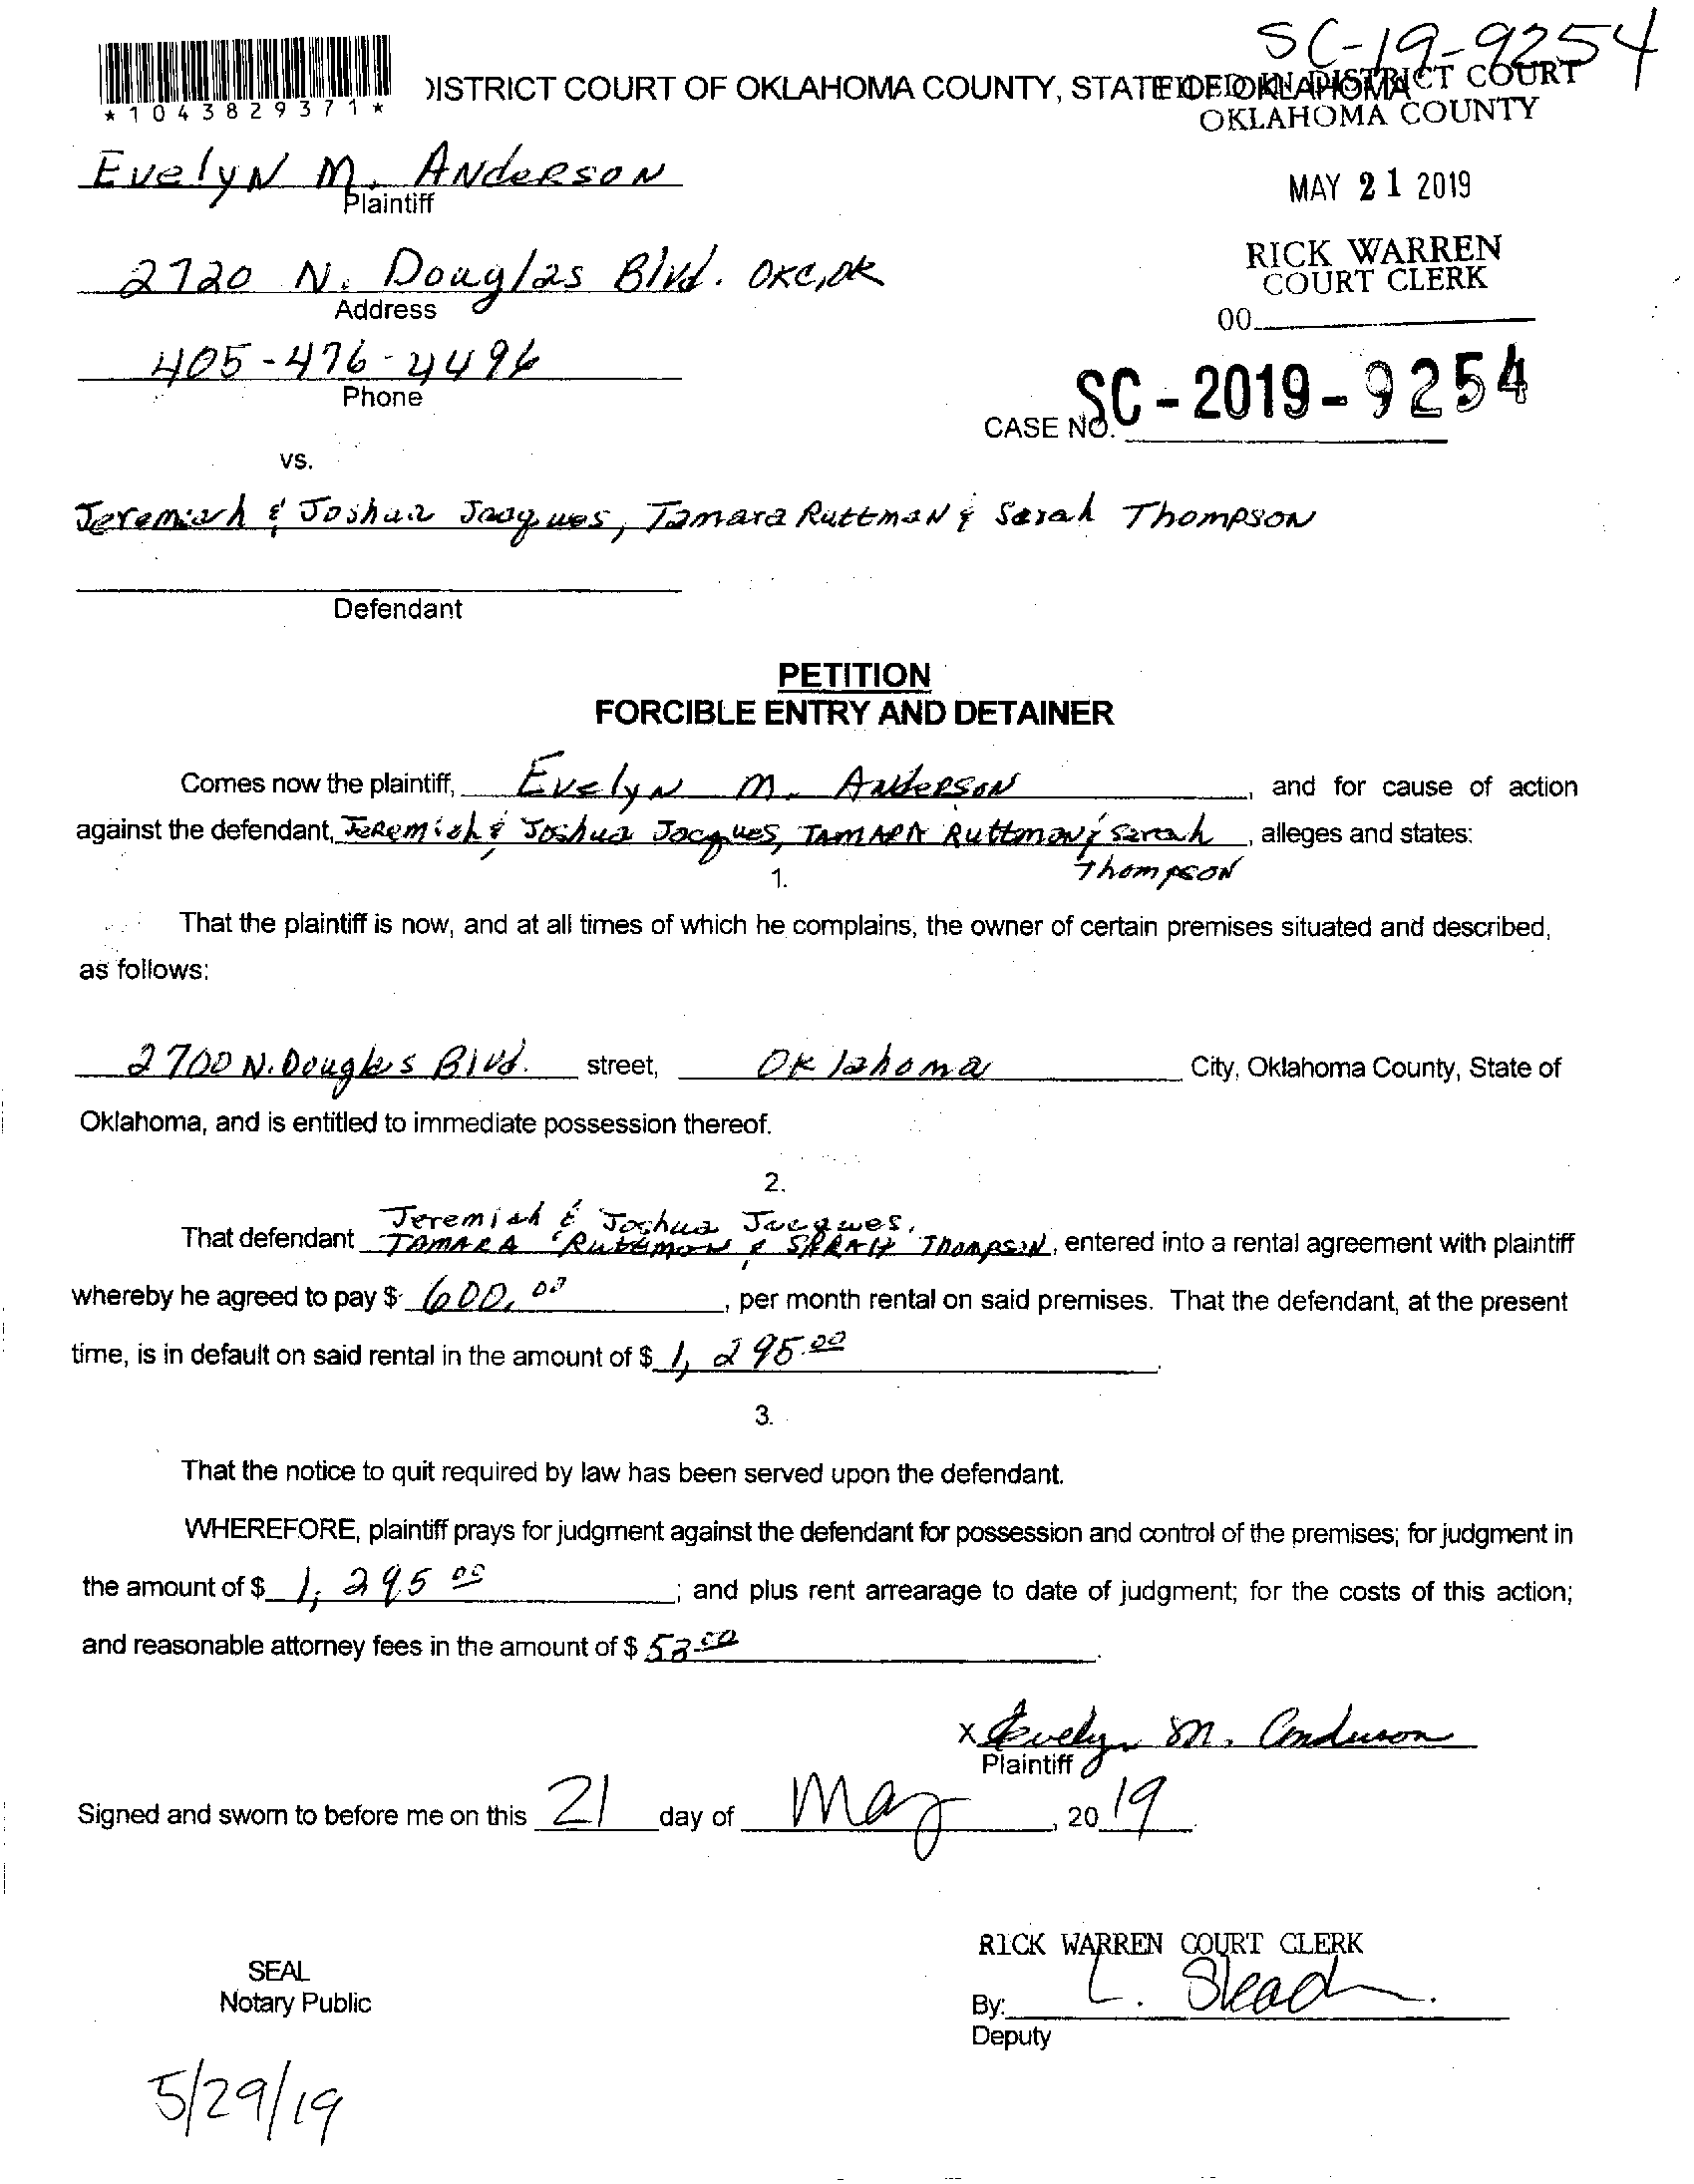 SC-19-9254
*1043829371*
DISTRICT COURT OF OKLAHOMA COUNTY, STATE OF OKLAHOMA
FILED IN DISTRICT COURT
OKLAHOMA COUNTY
Evelyn M. Anderson
Plaintiff
MAY 21 2019
2720 N. Douglas Blvd. OKC, OK
Address
RICK WARREN
COURT CLERK
00
405-476-4496
Phone
CASE NO. SC-2019-9254
vs.
Jeremiah & Joshua Jacques, Tamara Ruttman & Sarah Thompson
Defendant
PETITION
FORCIBLE ENTRY AND DETAINER
Comes now the plaintiff, Evelyn M. Anderson, and for cause of action
against the defendant, Jeremiah & Joshua Jacques, Tamara Ruttman & Sarah Thompson, alleges and states:
1.
That the plaintiff is now, and at all times of which he complains, the owner of certain premises situated and described,
as follows:
2700 N. Douglas Blvd. street, Oklahoma City, Oklahoma County, State of
Oklahoma, and is entitled to immediate possession thereof.
2.
Jeremiah & Joshua Jacques,
That defendant Tamara Ruttman & Sarah Thompson, entered into a rental agreement with plaintiff
whereby he agreed to pay $ 600.00, per month rental on said premises. That the defendant, at the present
time, is in default on said rental in the amount of $ 1,295.00.
3.
That the notice to quit required by law has been served upon the defendant.
WHEREFORE, plaintiff prays for judgment against the defendant for possession and control of the premises; for judgment in
the amount of $ 1,295.00; and plus rent arrearage to date of judgment; for the costs of this action;
and reasonable attorney fees in the amount of $ 58.00.
x Evelyn M. Anderson
Plaintiff
Signed and sworn to before me on this 21 day of May, 2019.
RICK WARREN COURT CLERK
SEAL
Notary Public
By: L.
Deputy
5/29/19